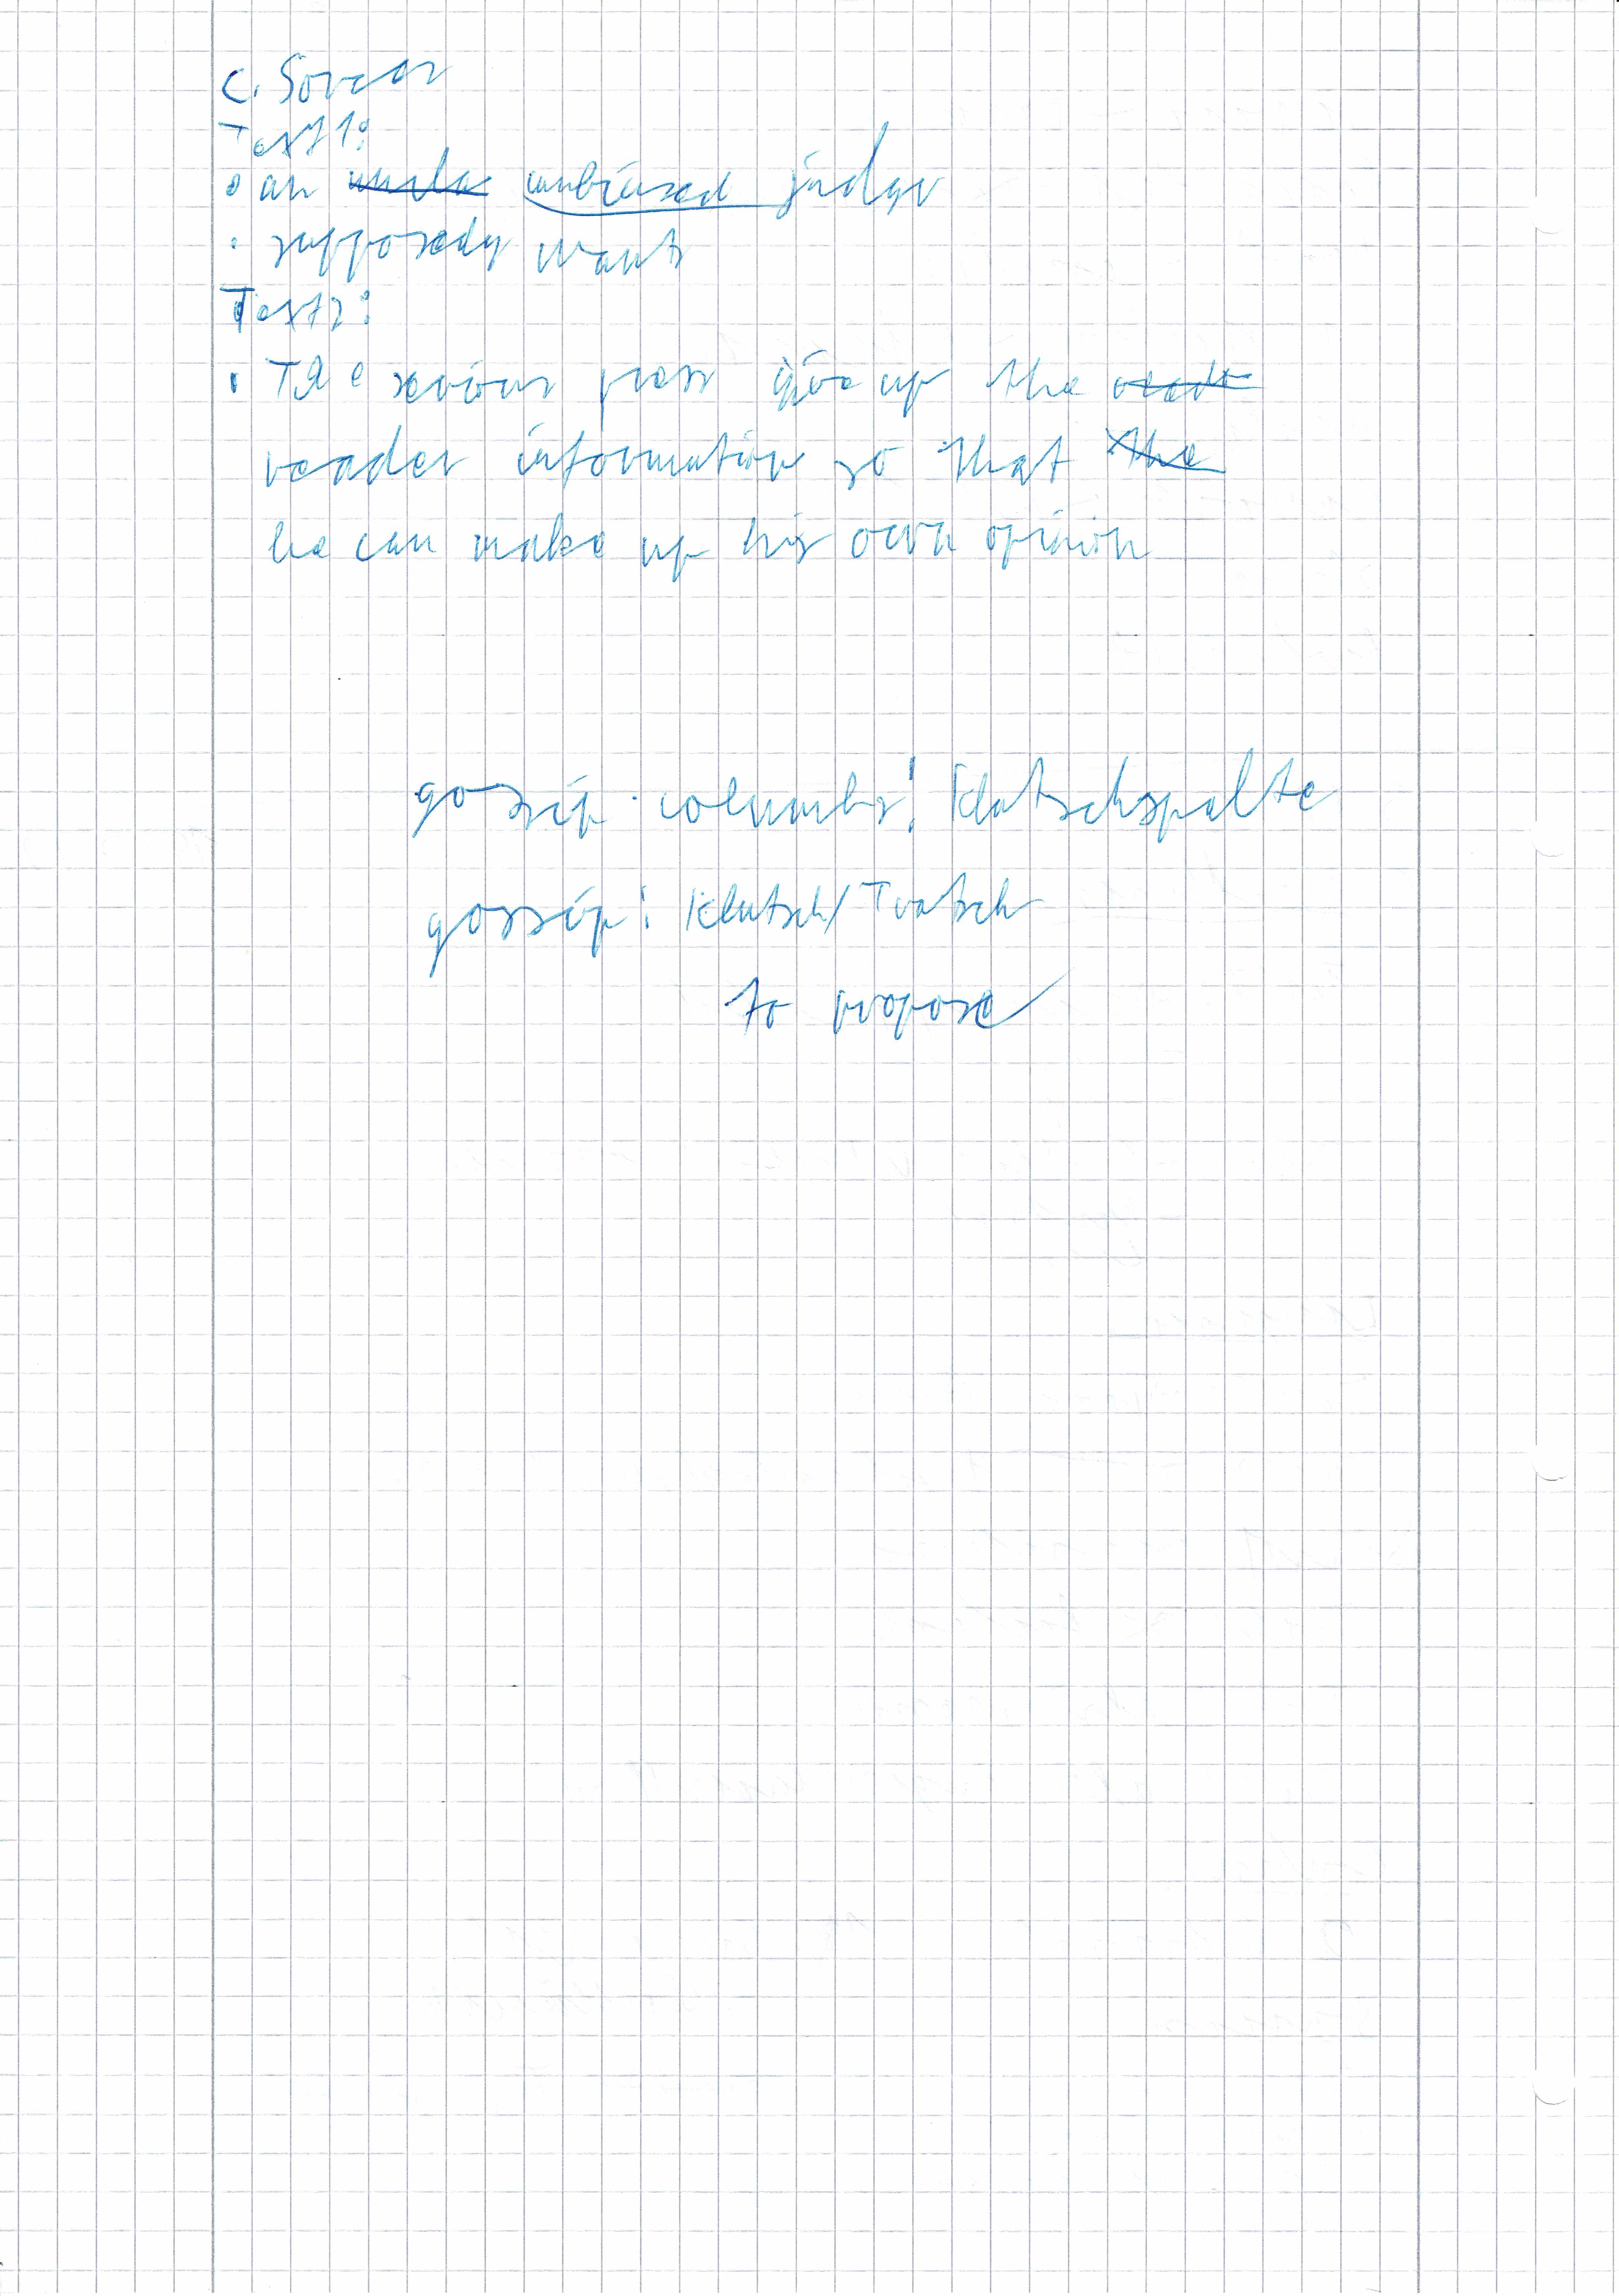 Text 1:
• an unbiased judge
• supposedy wants
Text 2:
• The serious press give up the
reader information so that
he can make up his own opinion
gossip-columbs: Klatschspalte
gossip: Klatsch/Tratsch
to propose